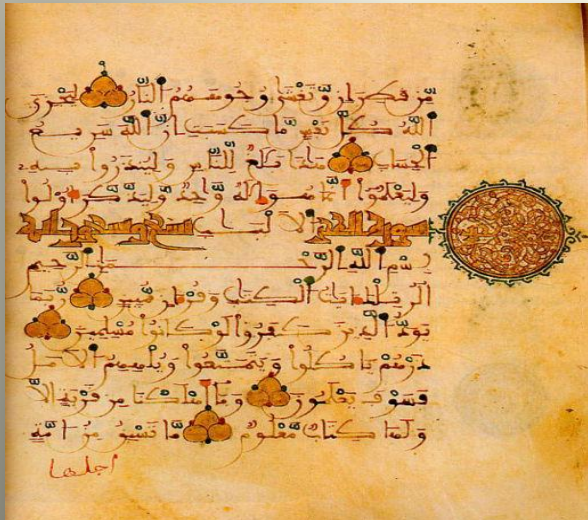 مّن قطران وّتغشى وجوههم النّار ليجزي
الله كلّ نفس مّا كسبت إنّ الله سريع
الحساب هذا بلغ لّلنّاس ولينذروا به
وليعلموا أنّما هو إله وّاحد وليذّكّر أولوا
سورة الحجر الالبب تسع وتسعون آية
بسم الله الرّحمن الرّحيم
الر تلك ءايت الكتب وقرءان مّبين رّبما
يودّ الّذين كفروا لو كانوا مسلمين
ذرهم ياكلوا ويتمتّعوا ويلههم الامل
فسوف يعلمون وما أهلكنا من قرية الاّ
ولها كتاب مّعلوم مّا تسبق من امّة
اجلها